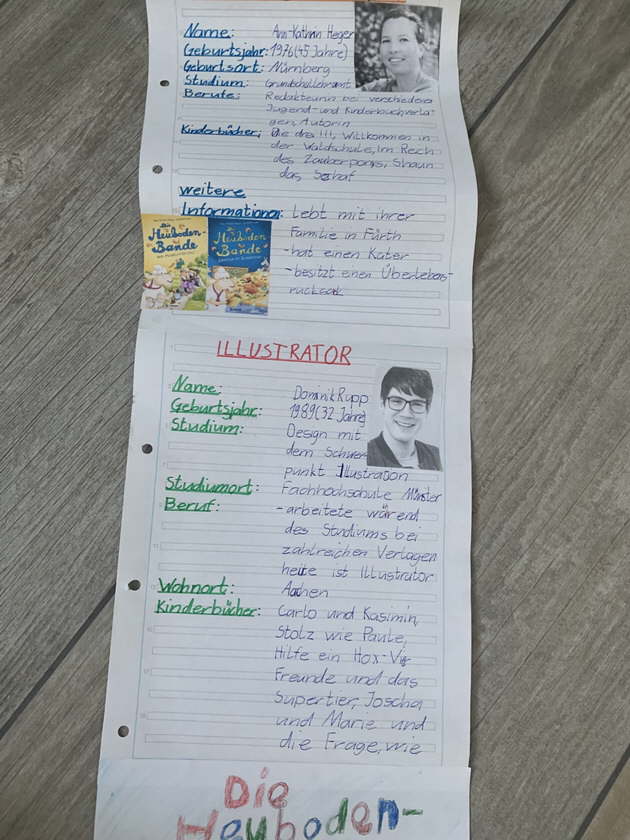 Name: Ann-Kathrin Heger
Geburtsjahr: 1976 (45 Jahre)
Geburtsort: Nürnberg
Studium: Grundschullehramt
Berufe: Redakteurin bei verschiedene
Jugend- und Kinderbuchverla-
gen, Autorin
Kinderbücher: Die drei !!!, Willkommen in
der Waldschule, Im Reich
des Zauberponys, Shaun
das Schaf
weitere
Informationen: Lebt mit ihrer
Familie in Fürth
Die Heuboden-
Bande
Die Heuboden
Bande
-hat einen Kater
-besitzt einen Überlebens-
rucksack
ILLUSTRATOR
Name: Dominik Rupp
Geburtsjahr: 1989 (32 Jahre)
Studium: Design mit
dem Schwer
punkt Illustration
Studiumort: Fachhochschule Münster
Beruf: -arbeitete wärend
des Studiums bei
zahlreichen Verlagen
heute ist Illustrator
Wohnort: Aachen
Kinderbücher: Carlo und Kasimin,
Stolz wie Paule,
Hilfe ein Hox-Vir
Freunde und das
Supertier, Joscha
und Marie und
die Frage, wie
Die
Heuboden-